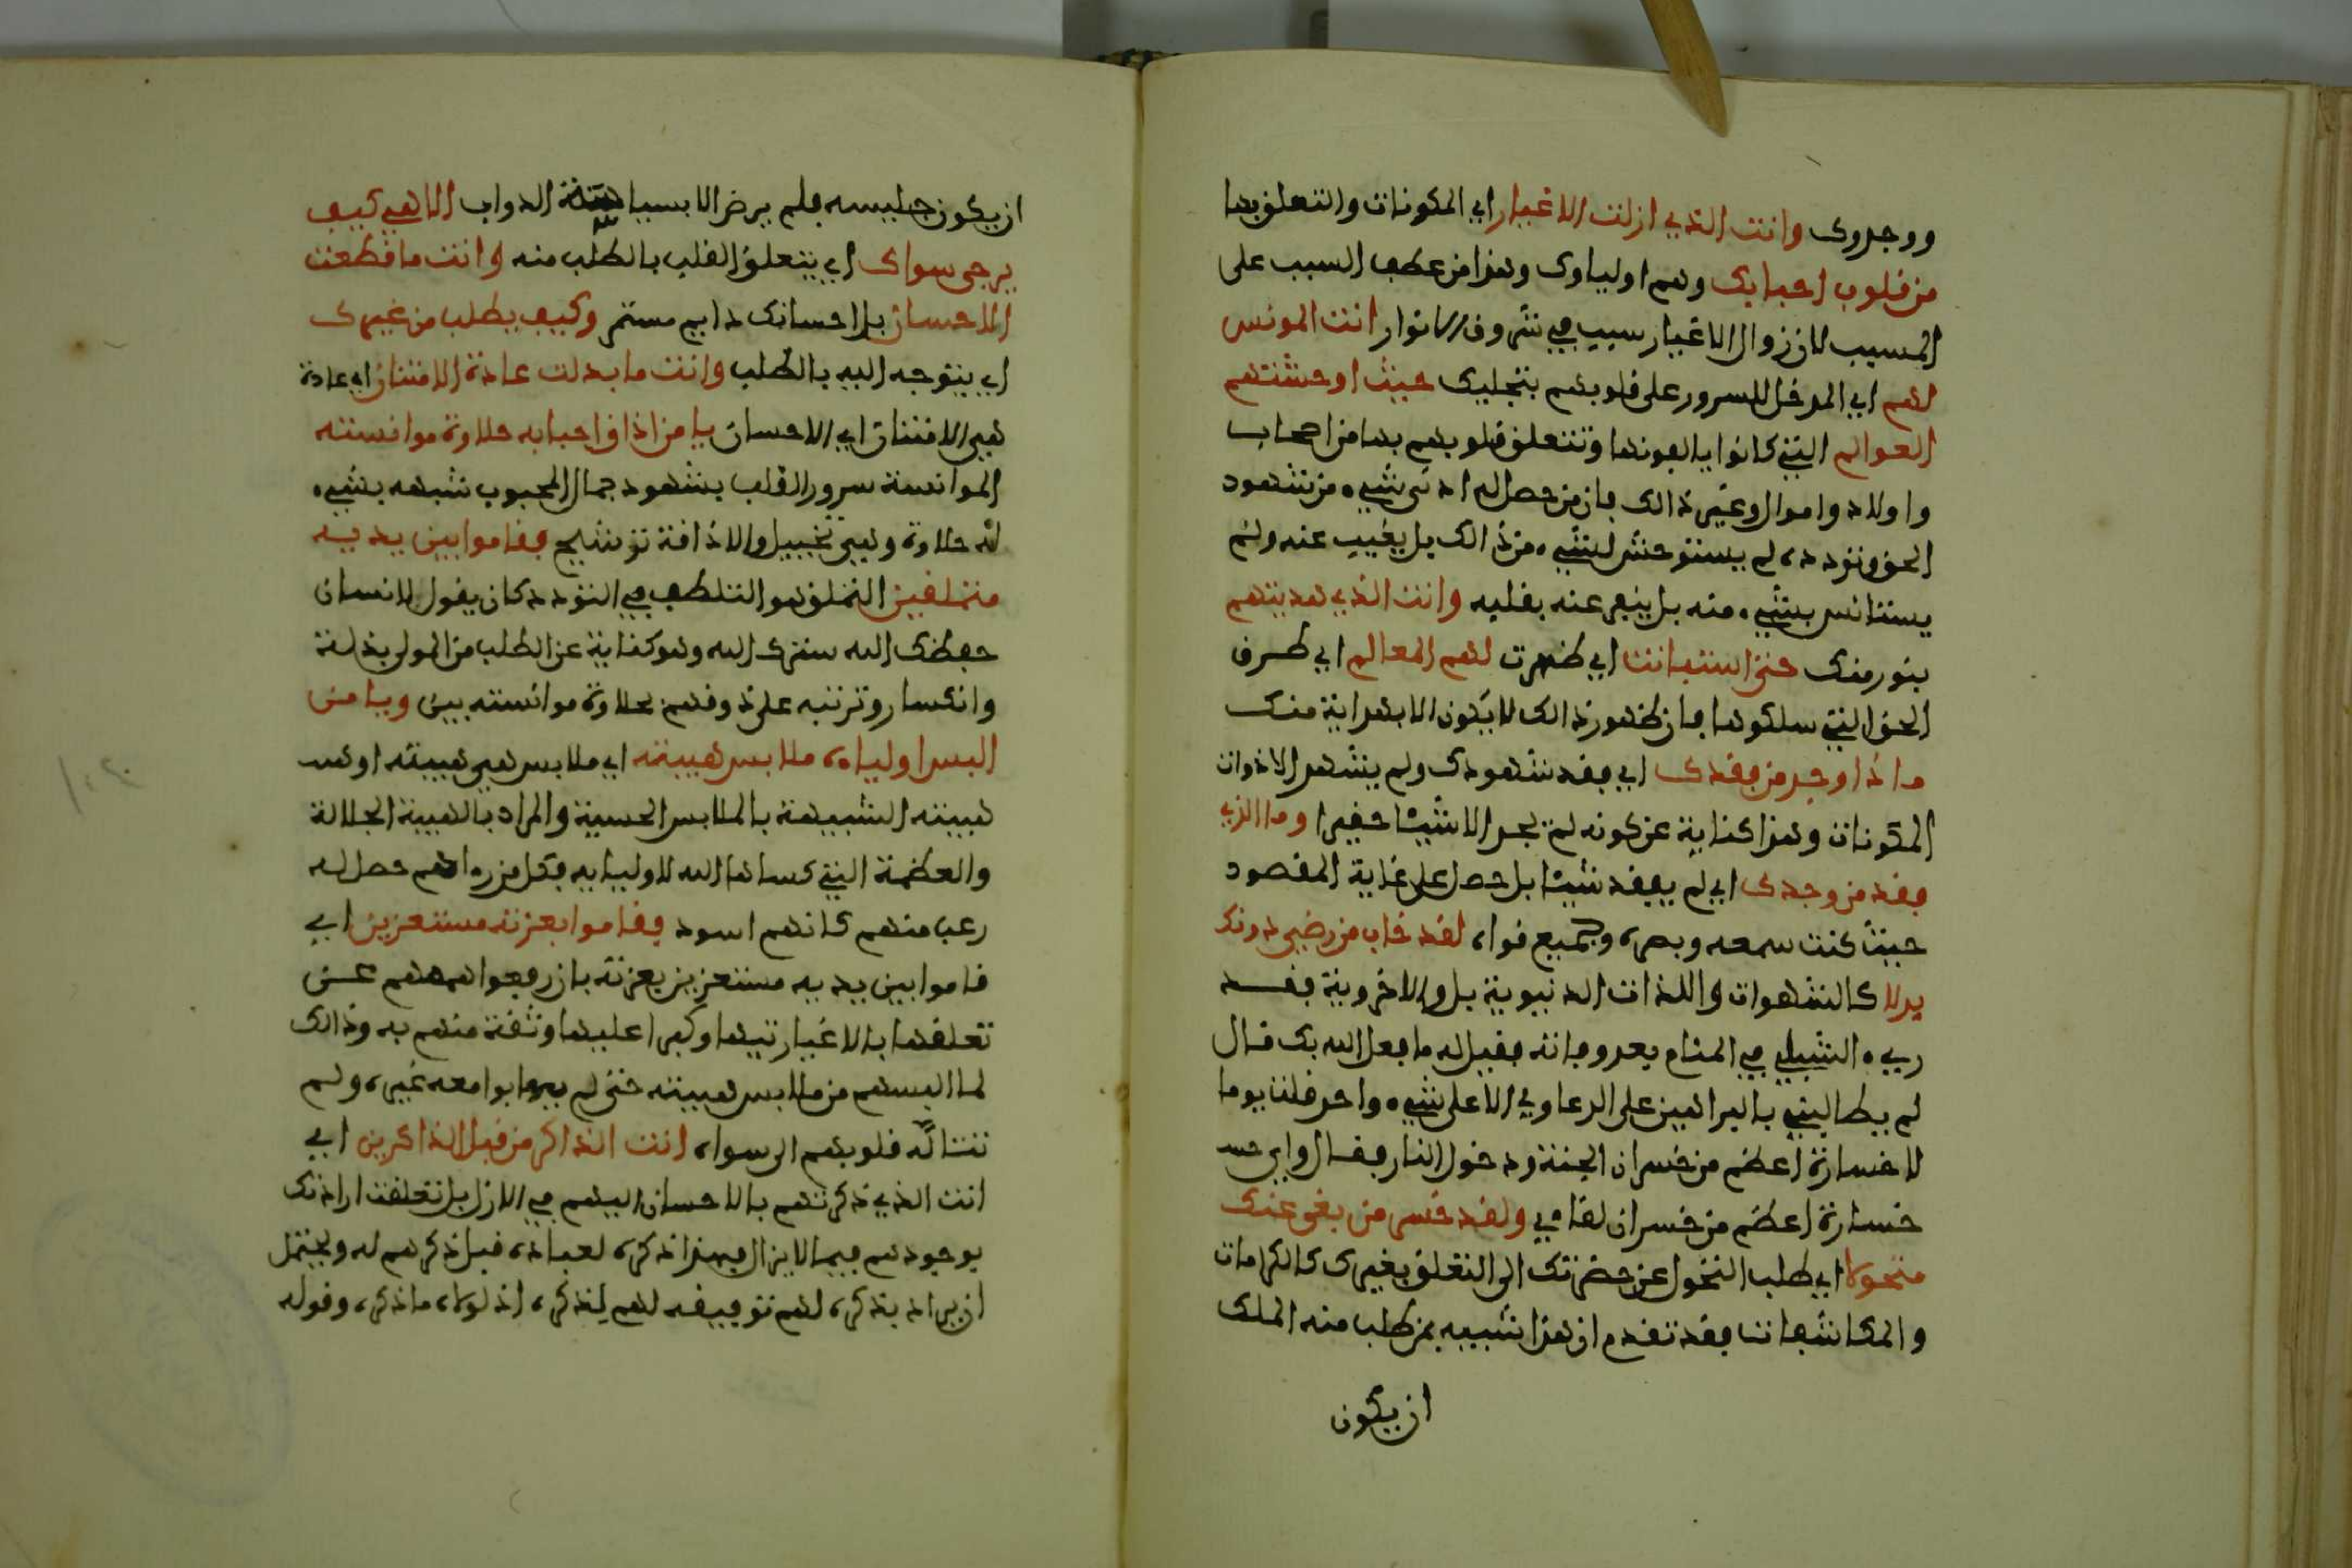 ووجدوك وانت الذي ازلت الاغيار اي المكونات والتعلق بها
من قلوب احبابك وهم اولياوك وهذا من عطف السبب على
المسبب لان زوال الاغيار سبب في شروق الانوار انت المونس
لهم اي المدخل للسرور على قلوبهم بتجليك حيث اوحشتهم
العوالم التي كانوا يالفونها وتتعلق قلوبهم بها من اصحاب
واولاد واموال وغير ذالك فان من حصل له ادنى شيء من شهود
الحق وتودده لم يستوحش لشيء من ذالك بل يغيب عنه ولم
يستانس بشيء منه بل ينفر عنه بقلبه وانت الذي هديتهم
بنور منك حتى استبانت اي ظهرت لهم المعالم اي طرق
الحق التي سلكوها فان ظهور ذالك لا يكون الا بهداية منك
ماذا وجد من فقدك اي فقد شهودك ولم يشهد الا ذوات
المكونات وهذا كناية عن كونه لم يجد الا شيئا حقيرا وما الذي
فقد من وجدك اي لم يفقد شيئا بل حصل على غاية المقصود
حيث كنت سمعه وبصره وجميع قواه لقد خاب من رضي دونك
بدلا كالشهوات واللذات الدنيوية بل والاخروية فقد
ريء الشبلي في المنام بعد وفاته فقيل له ما فعل الله بك قال
لم يطالبني بالبراهين على الدعاوي الا على شيء واحد قلت يوما
لا خسارة اعظم من خسران الجنة ودخول النار فقال واي
خسارة اعظم من خسران لقاءي ولقد خسر من بغى عنك
متحولا اي طلب التحول عن حضرتك الى التعلق بغيرك كالكرامات
والمكاشفات فقد تقدم ان هذا شبيه بمن طلب منه الملك
ان يكون
ان يكون جليسه فلم يرض الا بسياسة الدواب الاهي كيف
يرجى سواك اي يتعلق القلب بالطلب منه وانت ما قطعت
الاحسان بل احسانك دايم مستمر وكيف يطلب من غيرك
اي يتوجه اليه بالطلب وانت ما بدلت عادة الامتنان اي عادة
هي الامتنان اي الاحسان يا من اذاق احبابه حلاوة موانسته
الموانسة سرور القلب بشهود جمال المحبوب شبهه بشيء
له حلاوة وهي تخييل والاذاقة ترشيح فقاموا بين يديه
متملقين التملق هو التلطف في التودد كان يقول الانسان
حفظك الله سترك الله وهو كناية عن الطلب من المولى بذلة
وانكسار وترتبه على ذوقهم حلاوة موانسته بين ويا من
البس اولياءه ملابس هيبته اي ملابس هي هيبته او
هيبته الشبيهة بالملابس الحسية والمراد بالهيبة الجلالة
والعظمة التي كساها الله لاوليايه فكل من رءاهم حصل له
رعب منهم كانهم اسود فقاموا بعزته مستعزين اي
قاموا بين يديه مستعزين بعزته بان رفعوا هممهم عن
تعلقها بالاغيار تيها وكبرا عليها وثقة منهم به وذالك
لما البسهم من ملابس هيبته حتى لم يهابوا معه غيره ولم
تتاله قلوبهم الى سواه انت الذاكر من قبل الذاكرين اي
انت الذي ذكرتهم بالاحسان اليهم في الازل بل تعلقت ارادتك
بوجودهم فيما لا يزال فهذا ذكره لعباده قبل ذكرهم له ويحتمل
ان يراد بذكره لهم توفيقه لهم لذكره اذ لولاه ما ذكره وقوله